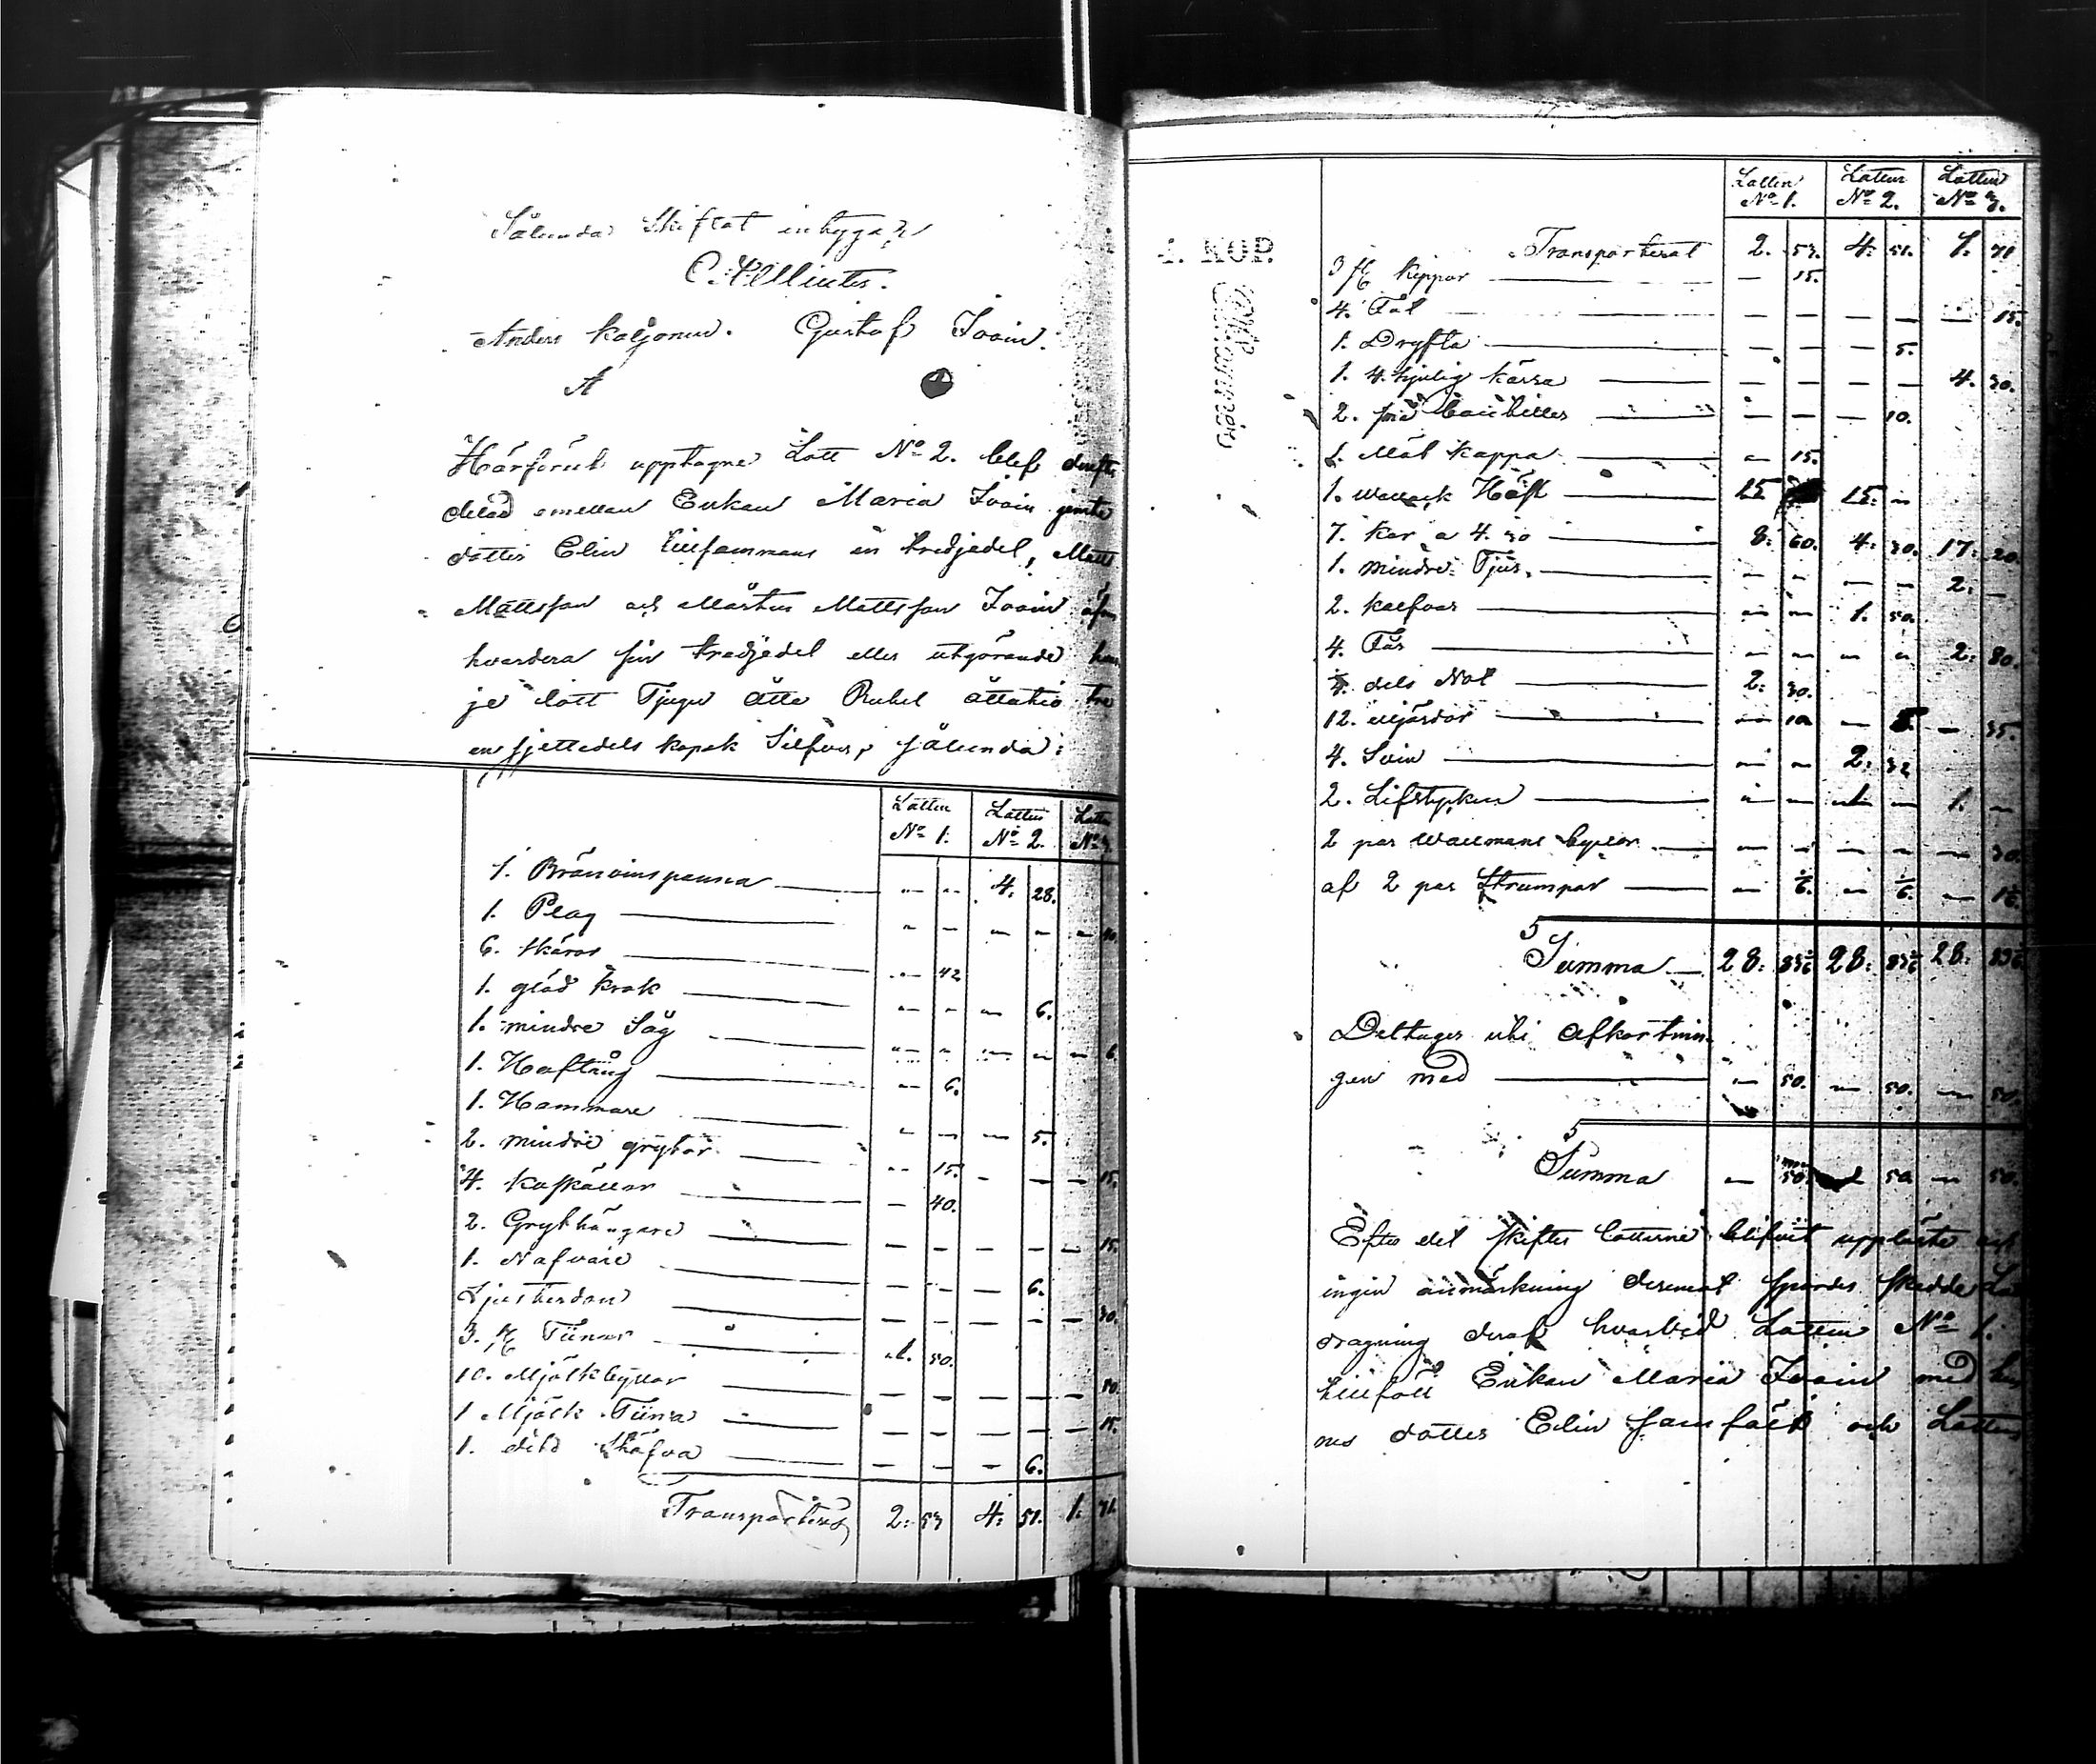 Sålunda Skiftat intygar
Anders Gustaf Ivoin.
A
Härförut upptagne Lott No 2. blef
delad emellan Enkan Maria Ivoin jemte
dotter Elin en tredjedel, Matts
Mattsson och Mårten Mattsson Ivoin
hvardera sin tredjedel eller utgörande
je lott Tjugu åtta Rubel åttatio tre
en sjettedels kopek Silfver, sålunda:
Lotten No 1. Lotten No 2. Lotten No 3.
1. Bränvinspanna — — — 4. 28.
1. Plog — — — — — —
6. skäror — — 42
1. glöd krok — — — — 6.
1. mindre Såg — — — — — — 6.
1. Hoftång — — 6.
1. Hammare — — — — 5.
2. mindre grytor — — 15. — — — 15.
4. koskällor — — 40.
2. Grythängare — — — — — — 15.
1. Nafvare — — — — 6.
Ljusterdon — — — — — — 30.
3. st Tiinor — 1. 50.
10. Mjölkbyttor — — — — — —
1 Mjölk Tiina — — — — — — 15.
1. dito Skåfva — — — — 6.
Transporteras 2: 53 4: 51. 1: 71.
Lotten No 1. Lotten No 2. Lotten No 3.
4. KOP.
Transporterat 2. 53. 4: 51. 1. 71
3 st Kippor — — 15.
4. Fat — — — — — — 15.
1. Dryfta — — — — 5.
1. 4. hjulig kärra — — — — — 4. 30.
2. — — — — 10.
1. Mål kappa — — 15.
1. Wallack Häst — 15 15: —
7. Kor a 4. 30 — 8: 60. 4: 30. 17: 20.
1. mindre Tjur. — — — — — 2: —
2. kalfvar — — — 1. 50.
4. Får — — — — — 2: 80.
4. dels Not — 2: 30.
12. Mjärdor — — 10 — 5 — 35.
4. Svin — — — 2: 32
2. Lifstycken — — — — — 1. —
2 par Wallmans byxor — — — — — — 30.
af 2 par Strumpor — — 1/6. — 1/6. — 1/6.
Summa — 28: 83 1/6 28: 83 1/6 28: 83 1/6
Deltager uti afkortnin-
gen med — — 50. — 50. — 50.
Summa — 50. — 50 — 50.
Efter det skiftes lotterne blifvit uppläste och
ingin anmärkning deremot spordes skedde
dragning deraf hvarvid Lotten No 1.
tillföll Enkan Maria Ivoin med hen
nes dotter Elin samfält och Lotten